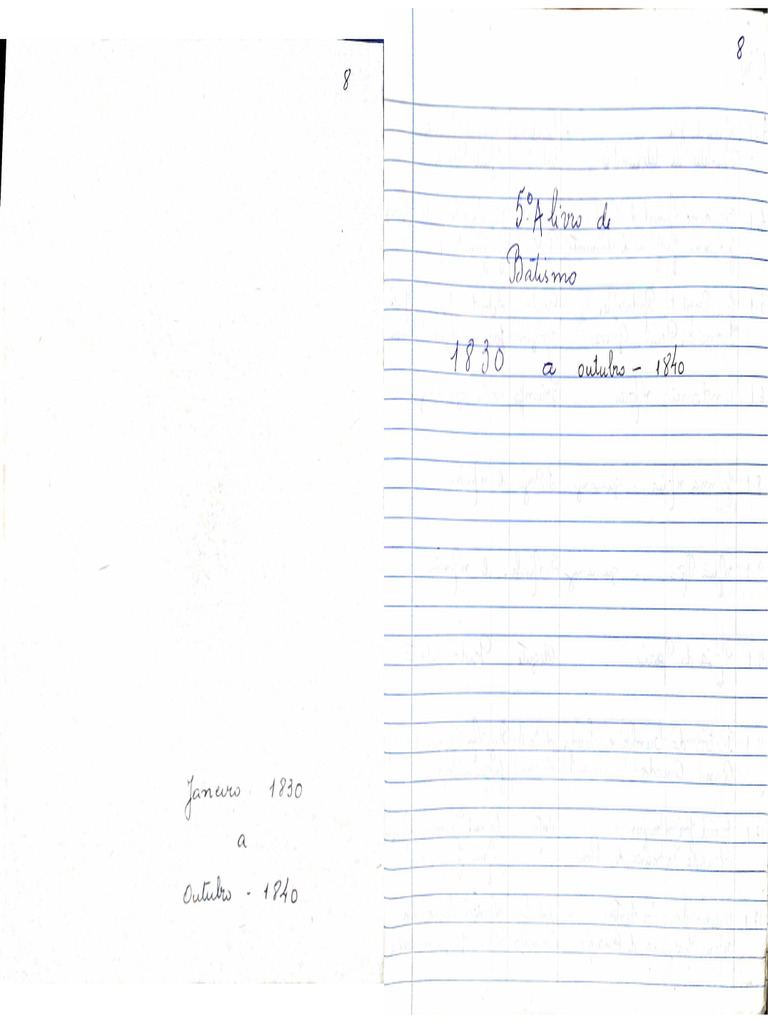 8
Janeiro - 1830
a
Outubro - 1840
8
5º A livro de
Batismo
1830 a outubro - 1840